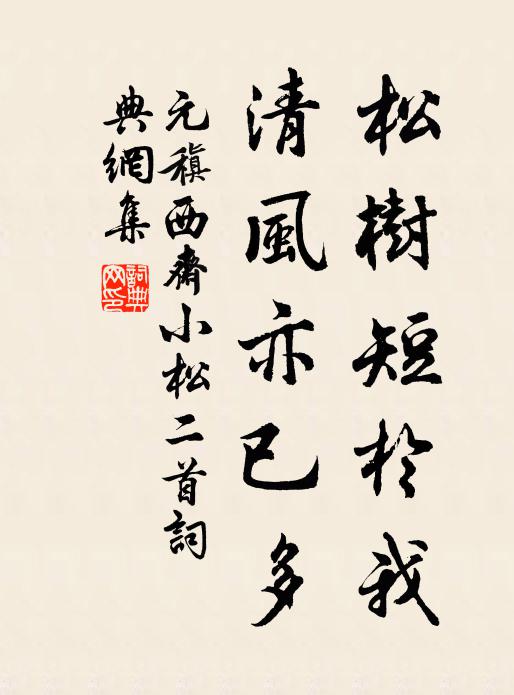 松樹短於我
清風亦已多
元稹西齋小松二首詞
典網集
詞典網印